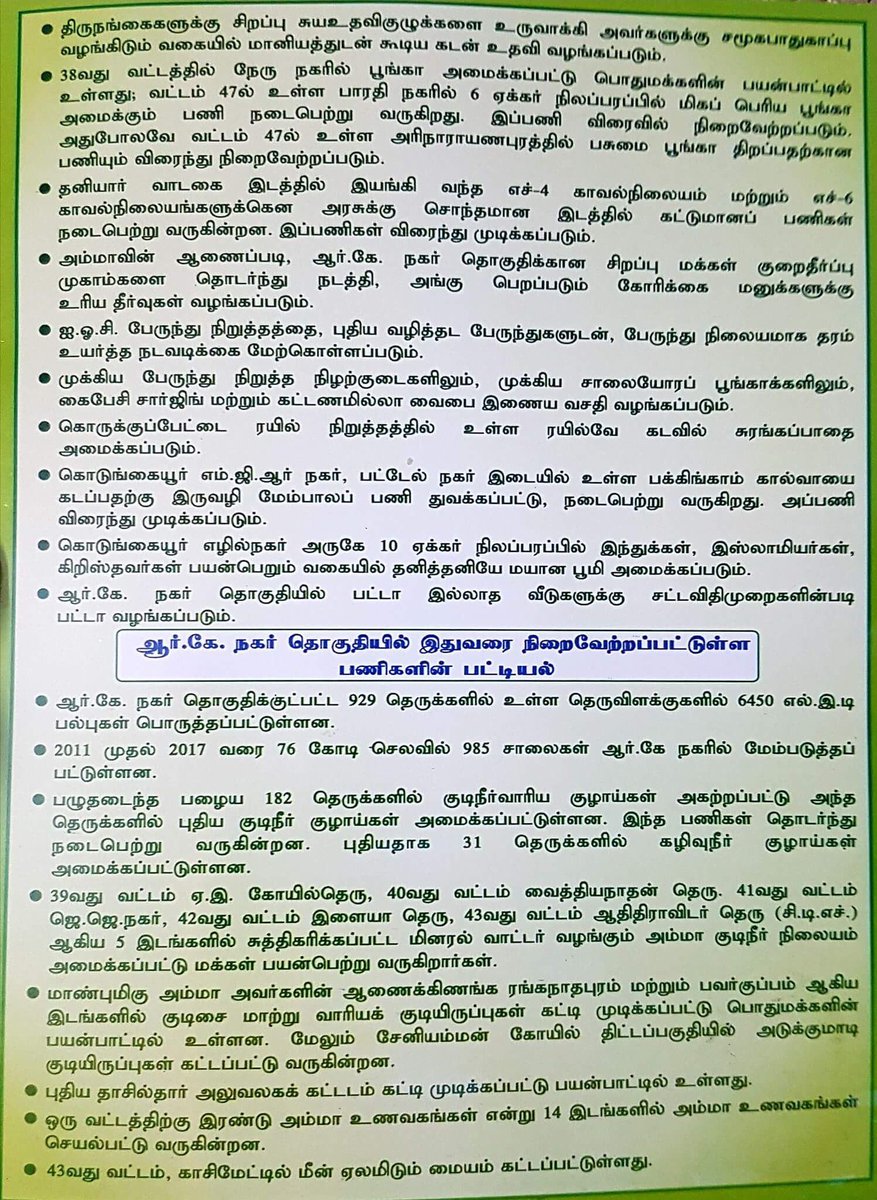 ● திருநங்கைகளுக்கு சிறப்பு சுயஉதவிகுழுக்களை உருவாக்கி அவர்களுக்கு சமூகபாதுகாப்பு
வழங்கிடும் வகையில் மானியத்துடன் கூடிய கடன் உதவி வழங்கப்படும்.
● 38வது வட்டத்தில் நேரு நகரில் பூங்கா அமைக்கப்பட்டு பொதுமக்களின் பயன்பாட்டில்
உள்ளது; வட்டம் 47ல் உள்ள பாரதி நகரில் 6 ஏக்கர் நிலப்பரப்பில் மிகப் பெரிய பூங்கா
அமைக்கும் பணி நடைபெற்று வருகிறது. இப்பணி விரைவில் நிறைவேற்றப்படும்.
அதுபோலவே வட்டம் 47ல் உள்ள அரிநாராயணபுரத்தில் பசுமை பூங்கா திறப்பதற்கான
பணியும் விரைந்து நிறைவேற்றப்படும்.
● தனியார் வாடகை இடத்தில் இயங்கி வந்த எச்-4 காவல்நிலையம் மற்றும் எச்-6
காவல்நிலையங்களுக்கென அரசுக்கு சொந்தமான இடத்தில் கட்டுமானப் பணிகள்
நடைபெற்று வருகின்றன. இப்பணிகள் விரைந்து முடிக்கப்படும்.
● அம்மாவின் ஆணைப்படி, ஆர்.கே. நகர் தொகுதிக்கான சிறப்பு மக்கள் குறைதீர்ப்பு
முகாம்களை தொடர்ந்து நடத்தி, அங்கு பெறப்படும் கோரிக்கை மனுக்களுக்கு
உரிய தீர்வுகள் வழங்கப்படும்.
● ஐ.ஓ.சி. பேருந்து நிறுத்தத்தை, புதிய வழித்தட பேருந்துகளுடன், பேருந்து நிலையமாக தரம்
உயர்த்த நடவடிக்கை மேற்கொள்ளப்படும்.
● முக்கிய பேருந்து நிறுத்த நிழற்குடைகளிலும், முக்கிய சாலையோரப் பூங்காக்களிலும்,
கைபேசி சார்ஜிங் மற்றும் கட்டணமில்லா வைபை இணைய வசதி வழங்கப்படும்.
● கொருக்குப்பேட்டை ரயில் நிறுத்தத்தில் உள்ள ரயில்வே கடவில் சுரங்கப்பாதை
அமைக்கப்படும்.
● கொடுங்கையூர் எம்.ஜி.ஆர் நகர், பட்டேல் நகர் இடையில் உள்ள பக்கிங்காம் கால்வாயை
கடப்பதற்கு இருவழி மேம்பாலப் பணி துவக்கப்பட்டு, நடைபெற்று வருகிறது. அப்பணி
விரைந்து முடிக்கப்படும்.
● கொடுங்கையூர் எழில்நகர் அருகே 10 ஏக்கர் நிலப்பரப்பில் இந்துக்கள், இஸ்லாமியர்கள்,
கிறிஸ்தவர்கள் பயன்பெறும் வகையில் தனித்தனியே மயான பூமி அமைக்கப்படும்.
● ஆர்.கே. நகர் தொகுதியில் பட்டா இல்லாத வீடுகளுக்கு சட்டவிதிமுறைகளின்படி
பட்டா வழங்கப்படும்.
ஆர்.கே. நகர் தொகுதியில் இதுவரை நிறைவேற்றப்பட்டுள்ள
பணிகளின் பட்டியல்
● ஆர்.கே. நகர் தொகுதிக்குட்பட்ட 929 தெருக்களில் உள்ள தெருவிளக்குகளில் 6450 எல்.இ.டி
பல்புகள் பொருத்தப்பட்டுள்ளன.
● 2011 முதல் 2017 வரை 76 கோடி செலவில் 985 சாலைகள் ஆர்.கே நகரில் மேம்படுத்தப்
பட்டுள்ளன.
● பழுதடைந்த பழைய 182 தெருக்களில் குடிநீர்வாரிய குழாய்கள் அகற்றப்பட்டு அந்த
தெருக்களில் புதிய குடிநீர் குழாய்கள் அமைக்கப்பட்டுள்ளன. இந்த பணிகள் தொடர்ந்து
நடைபெற்று வருகின்றன. புதியதாக 31 தெருக்களில் கழிவுநீர் குழாய்கள்
அமைக்கப்பட்டுள்ளன.
● 39வது வட்டம் ஏ.இ. கோயில்தெரு, 40வது வட்டம் வைத்தியநாதன் தெரு. 41வது வட்டம்
ஜெ.ஜெ.நகர், 42வது வட்டம் இளையா தெரு, 43வது வட்டம் ஆதிதிராவிடர் தெரு (சி.டி.எச்.)
ஆகிய 5 இடங்களில் சுத்திகரிக்கப்பட்ட மினரல் வாட்டர் வழங்கும் அம்மா குடிநீர் நிலையம்
அமைக்கப்பட்டு மக்கள் பயன்பெற்று வருகிறார்கள்.
● மாண்புமிகு அம்மா அவர்களின் ஆணைக்கிணங்க ரங்கநாதபுரம் மற்றும் பவர்குப்பம் ஆகிய
இடங்களில் குடிசை மாற்று வாரியக் குடியிருப்புகள் கட்டி முடிக்கப்பட்டு பொதுமக்களின்
பயன்பாட்டில் உள்ளன. மேலும் சேனியம்மன் கோயில் திட்டப்பகுதியில் அடுக்குமாடி
குடியிருப்புகள் கட்டப்பட்டு வருகின்றன.
● புதிய தாசில்தார் அலுவலகக் கட்டடம் கட்டி முடிக்கப்பட்டு பயன்பாட்டில் உள்ளது.
● ஒரு வட்டத்திற்கு இரண்டு அம்மா உணவகங்கள் என்று 14 இடங்களில் அம்மா உணவகங்கள்
செயல்பட்டு வருகின்றன.
● 43வது வட்டம், காசிமேட்டில் மீன் ஏலமிடும் மையம் கட்டப்பட்டுள்ளது.